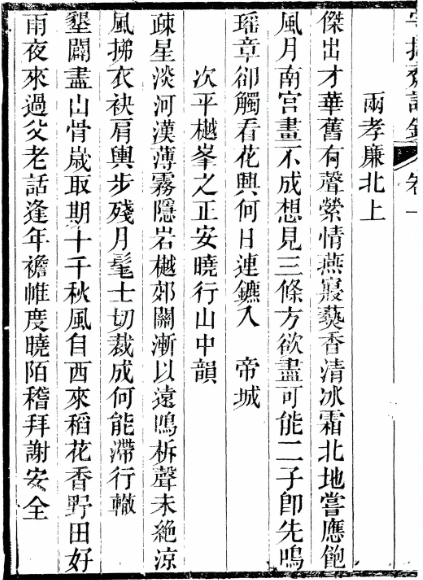 齋詩鈔 卷一
兩孝廉北上
傑出才華舊有聲縈情燕寢爇香清冰霜北地嘗應飽
風月南宮畫不成想見三條方欲盡可能二子卽先鳴
瑶章卻觸看花興何日連鑣入 帝城
次平樾峯之正安曉行山中韻
疎星淡河漢薄霧隱岩樾郊關漸以遠鳴柝聲未絶涼
風拂衣袂肩輿步殘月髦士切裁成何能滯行轍
墾闢盡山骨嵗取期十千秋風自西來稻花香野田好
雨夜來過父老話逢年襜帷度曉陌稽拜謝安全